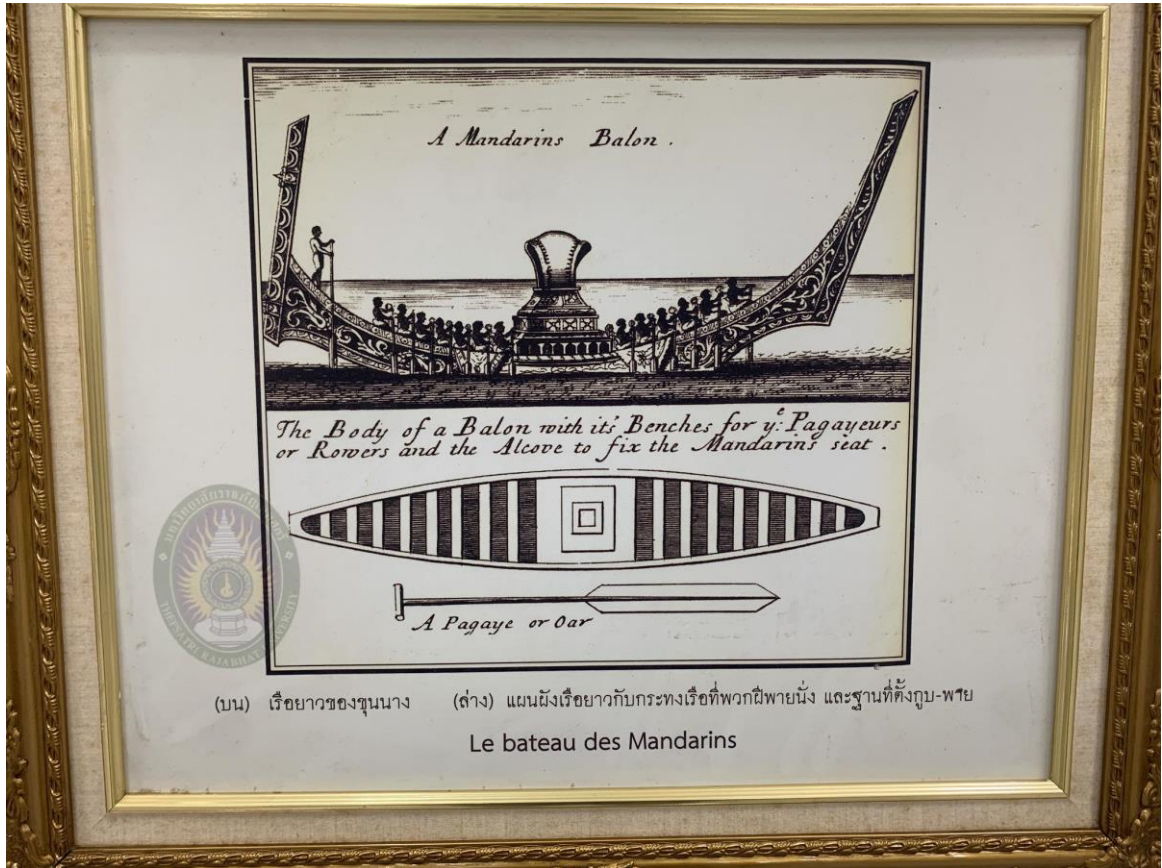 A Mandarins Balon.
The Body of a Balon with its Benches for yᵉ: Pagayeurs
or Rowers and the Alcove to fix the Mandarins seat.
A Pagaye or Oar
มหาวิทยาลัยราชภัฏเทพสตรี
THEPSATRI RAJABHAT UNIVERSITY
(บน) เรือยาวของขุนนาง (ล่าง) แผนผังเรือยาวกับกระทงเรือที่พวกฝีพายนั่ง และฐานที่ตั้งกูบ-พาย
Le bateau des Mandarins